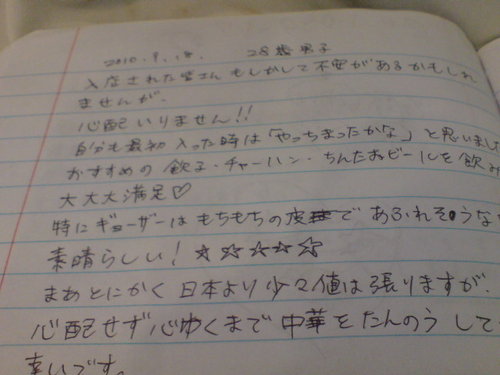 2010.9.18. 28歳 男子
入店された皆さん もしかして不安があるかもしれ
ませんが、
心配いりません!!
自分も最初 入った時は「やっちまったかな」と思いまし
おすすめの 餃子・チャーハン・ちんたおビールを飲み
大大大満足♡
特にギョーザーはもちもちの皮で あふれそうな
素晴らしい! ☆☆☆☆☆
まあとにかく 日本より少々値は張りますが、
心配せず心ゆくまで 中華をたんのうして
幸いです。